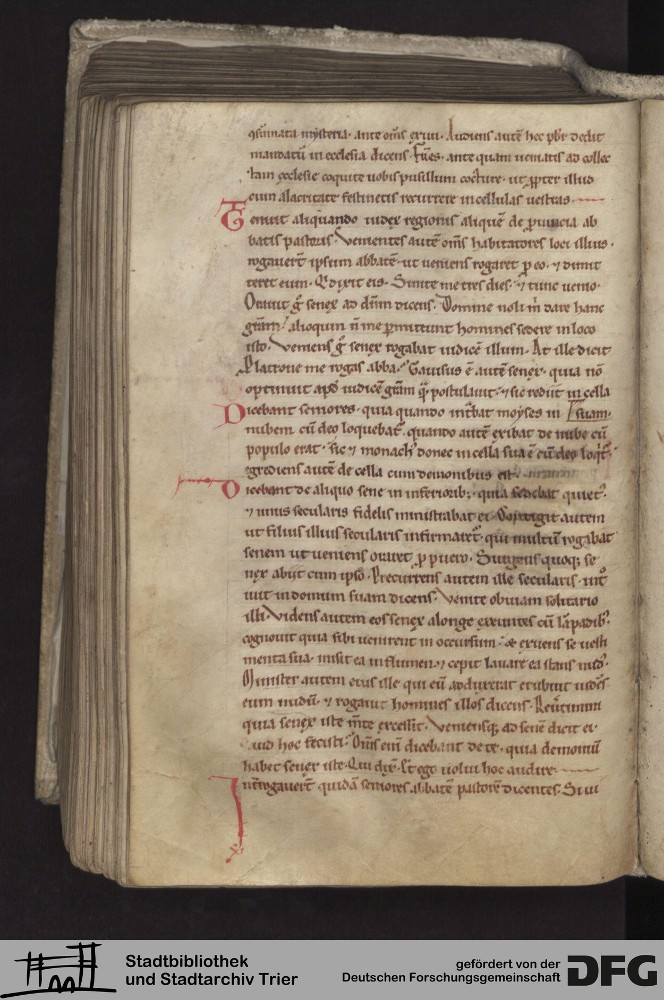 ꝯsūmata mysteria. ante om̄s exiui. Audiens autē hoc pb̄r dedit
mandatū in ecclesia dicens. Fr̄es. ante quam ueniatis ad collec
tam ecclesie coquite uobis pusillum cocture. ut ꝓpter illud
cum alacritate festinetis recurrere in cellulas uestras.
Tenuit aliquando iudex regionis aliquē de ꝓuincia ab
batis pastoris. Venientes autē om̄s habitatores loci illius.
rogauert̄ ipsum abbatē. ut ueniens rogaret ꝓ eo. ⁊ dimit
teret eum. Qͥ dixit eis. Sinite me tres dies. ⁊ tunc uenio.
Orauit gͦ senex ad dn̄m dicens. Domine noli m̄ dare hanc
grām. alioquin n̄ me ꝑmittunt homines sedere in loco
isto. Veniens gͦ senex rogabat iudicē illum. At ille dicit
Pͬ latrone me rogas abba. Gauisus ē autē senex. quia nō
optinuit apđ iudicē grām qͣ postulauit. ⁊ sic rediit in cella
Dicebant seniores. quia quando int̄bat moyses in suam.
nubem cū deo loquebat. quando autē exibat de nube cū
populo erat. sic ⁊ monachꝰ donec in cella sua ē cū deo loqͭ.
egrediens autē de cella cum demonibus est.
Dicebant de aliquo sene in inferiorib; quia sedebat quietꝰ.
⁊ unus secularis fidelis ministrabat ei. Contigit autem
ut filius illius secularis infirmaret. qui multum rogabat
senem ut ueniens oraret ꝓ puero. Surgens quoq; se
nex abiit cum ipso. Precurrens autem ille secularis. int̄
uit in domum suam dicens. Venite obuiam solitario
illi. Videns autem eos senex alonge exeuntes cū lāpadib;
cognouit quia sibi uenirent in occursum. & exuens se uesti
menta sua. misit ea in flumen. ⁊ cepit lauare ea stans nudꝰ.
Minister autem eius ille qui eū adduxerat erubuit uidēs
eum nudū. ⁊ rogauit homines illos dicens. Reūtimini
quia senex iste m̄te excessit. Veniensq; ad senē dicit ei
uid hoc fecisti. Om̄s eni dicebant de te. quia demoniū
habet senex iste. Qui dix̄. Et ego uolui hoc audire.
Int̄rogauert̄ quidā seniores abbatē pastorē dicentes. Si ui
Stadtbibliothek
und Stadtarchiv Trier
gefördert von der
Deutschen Forschungsgemeinschaft
DFG